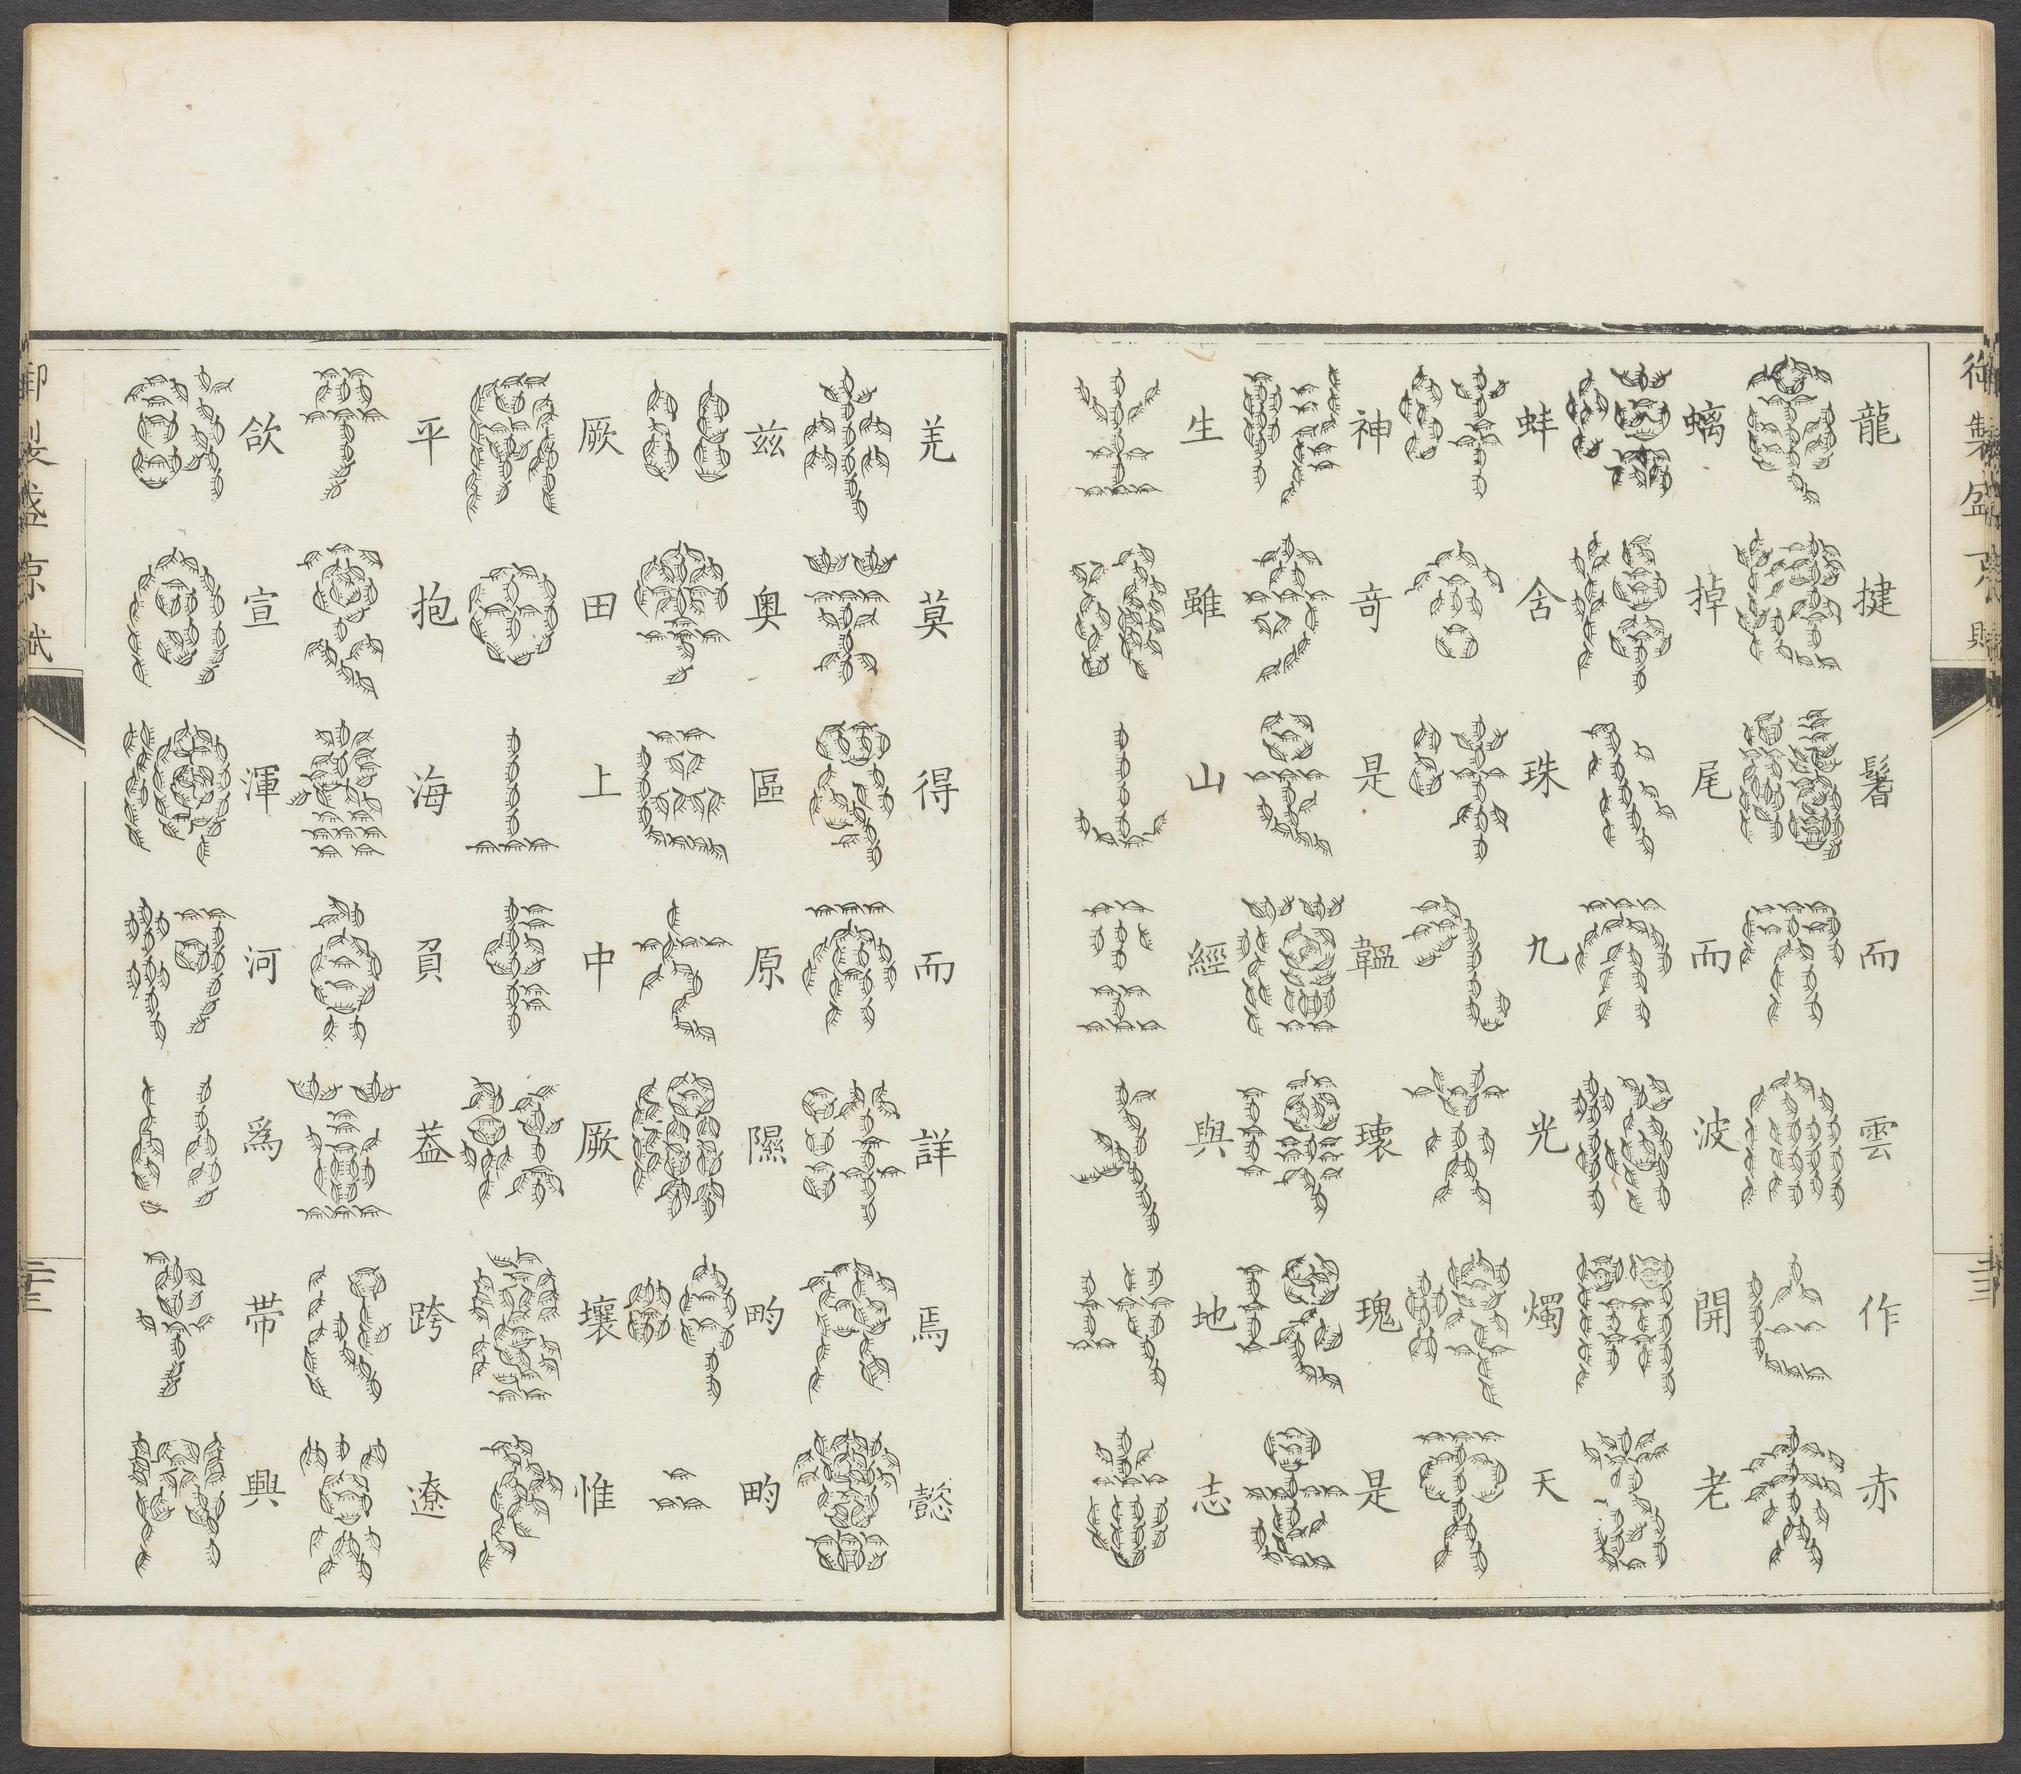 龍揵鬐而雲作赤
螭掉尾而波開老
蚌含珠九光燭天
神奇是韞瓌瑰是
生雖山經與地志
羌莫得而詳焉懿
兹奥區原隰畇畇
厥田上中厥壤惟
平抱海負葢跨遼
欱宣渾河爲帶興
御製盛京賦